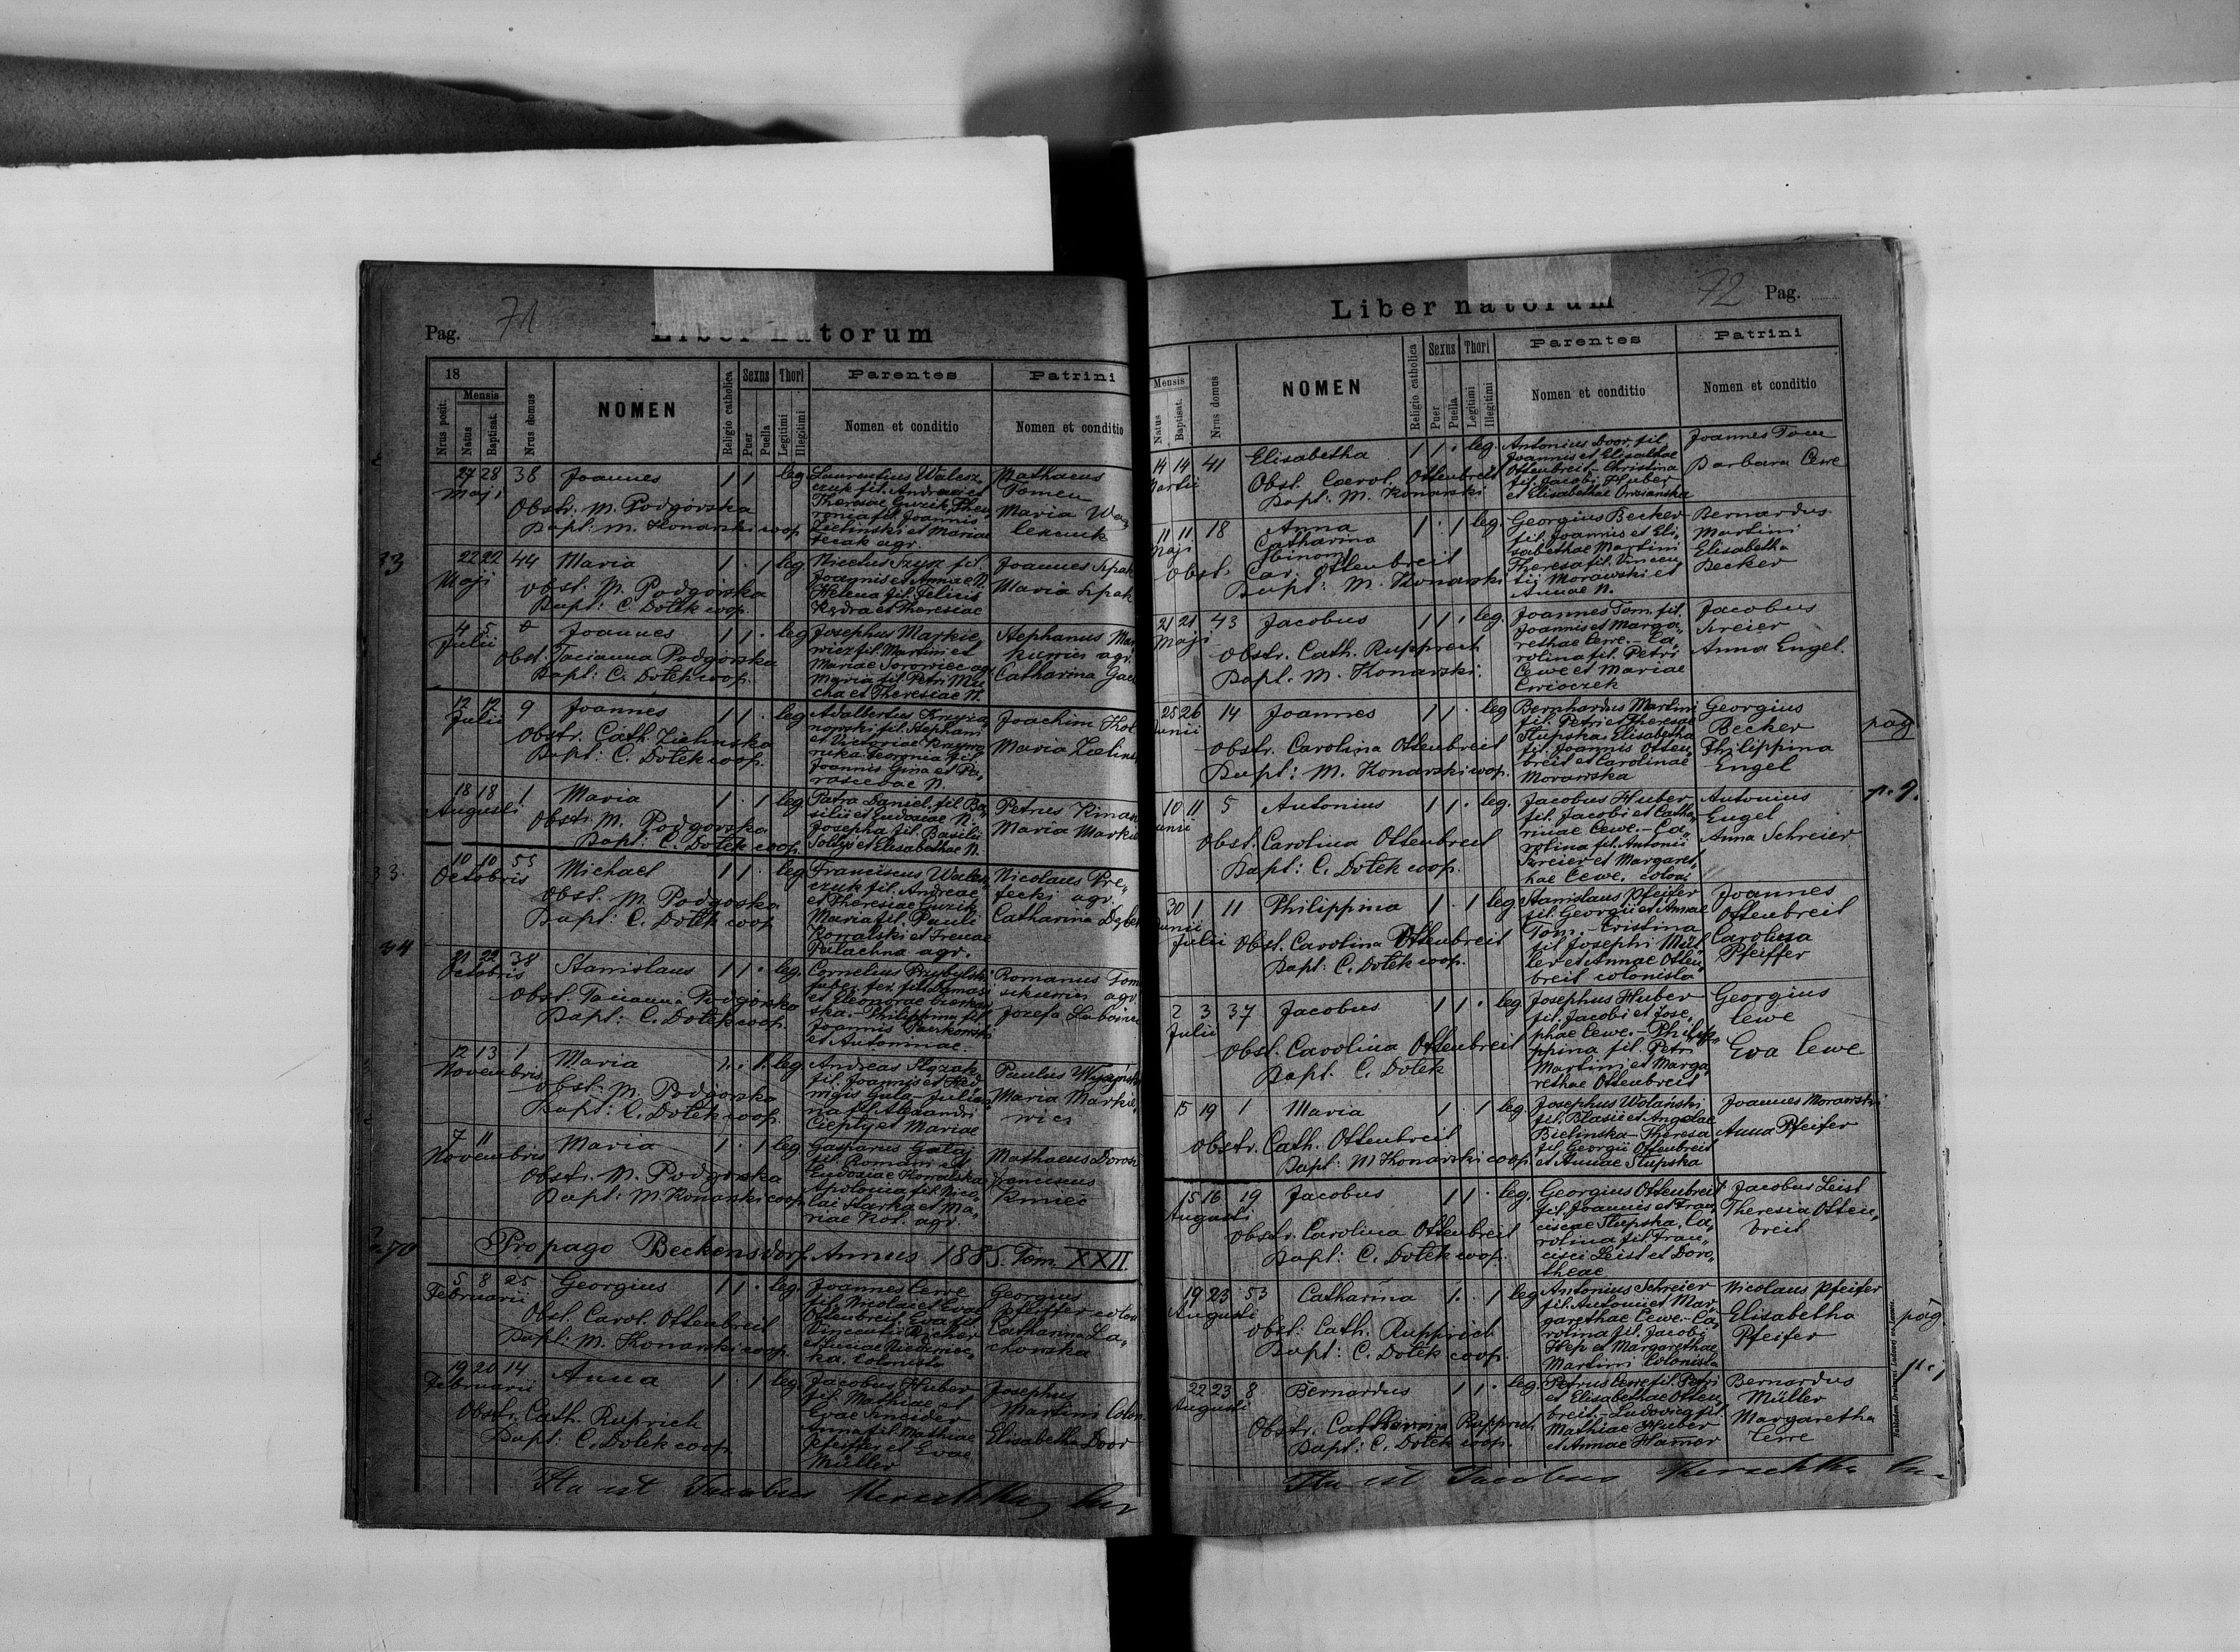 Pag. 71
Liber natorum
18
Nrus posit.
Mensis
Natus
Baptisat.
Nrus domus
NOMEN
Religio catholica
Sexus
Puer
Puella
Thori
Legitimi
Illegitimi
Parentes
Nomen et conditio
Patrini
Nomen et conditio
27 28 38 Joannes 1 1 leg
Maji
Obstr. M. Podgórska
Bapt: M. Konarski coop.
Laurentius Walesz
czuk fil. Andreae et
Theresae Guzik,
fil. Joannis
Zielinski et Mariae
agr.
Mathaeus
Tomen
Maria Wa
leszcuk
33
22 22 44 Maria 1 . 1 leg
Maji
obst. M. Podgórska
Bapt: C. Dotek coop.
Nicetus Szysz fil.
Joannis et Annae N.
Helena fil. Felicis
Kędra et Theresiae
Joannes Szpak
Maria Szpak
4 5 Joannes 1 1 . leg
Julii
Obst. Tacianna Podgórska
Bapt: C. Dotek coop.
Josephus Markie
wicz fil. Martini et
Mariae Sorowiec agr
Maria fil. Petri Mu
cha et Theresiae N.
Stephanus Mar
agr.
Catharina
12 12 9 Joannes 1 1 . leg
Julii
Obstr. Cath. Zielinska
Bapt: C. Dotek coop.
Adalbertus Krzyża
nowski fil. Stephani
et Victoriae
fil.
Joannis Gina et Pa
rascevae N.
Joachim Kot
Maria Zielins
18 18 1 Maria 1 . 1 leg
Augusti
Obstr. M. Podgorska
Bapt: C. Dotek coop.
Patra Daniel, fil Ba
silii et Eudoxiae N.
Josepha fil. Basilii
Sołtys et Elisabethae N.
Petrus Kinan
Maria Markie
33.
10 10 55 Michael 1 1 . leg
Octobris
Obst. M. Podgorska
Bapt: C. Dotek coop
Franciscus Walesz
czuk fil. Andreae
et Theresiae Guzik
Maria fil. Pauli
Kowalski et Irenae
Patachna agr.
Nicolaus Pre
tecki agr.
Catharina
34
21 22 38 Stanislaus 1 1 . leg.
Octobris
Obst. Tacianna Podgórska
Bapt: C. Dotek coop.
Cornelius Przybylski
faber. fer. fil. Damasi
et Eleonorae
ska. Philippina fil
Joannis Pankowski
et Antoninae.
Romanus Tom
agr.
Jozefa
12 13 1 Maria 1. . 1. leg
Novembris
obst. M. Podgorska
Bapt: C. Dotek coop.
Andreas Slązak
fil. Joannis et Hed
wigis Gula Julian
na fil. Alexandri
Cieply et Mariae
Paulus
Maria Markie
wicz
7 11 Maria 1 . 1 leg
Novembris
Obstr. M. Podgorska
Bapt: M. Konarski coop.
Gasparus Gałaj
fil. Romani et
Eudoxiae Kowalska
Apolonia fil. Nico
lai Starka et Ma
riae Kot. agr.
Mathaeus Dorosz
Franciscus
Kmiec
70
Propago Beckensdorf Annus 1885. Tom. XXII.
5 8 25 Georgius 1 1 . leg.
Februarii
Obst. Carol. Ottenbreit
Bapt: M. Konarski coop.
Joannes Cewe
fil. Nicolai et Evae
Ottenbreit. Eva fil
Vincentii
et Annae
ka. Colonista
Georgius
Pfeiffer colon
Catharina La
chowska
19 20 14 Anna 1 . 1 leg
Februarii
Obstr. Cath. Ruprich
Bapt: C. Dotek coop.
Jacobus Huber
fil. Mathiae et
Evae Sneider
Anna fil. Mathiae
Pfeiffer et Evae
Müller
Josephus
Martini Colon.
Elisabetha Door
Ita est Jacobus
72 Pag.
Liber natorum
Mensis
Natus
Baptisat.
Nrus domus
NOMEN
Religio catholica
Sexus
Puer
Puella
Thori
Legitimi
Illegitimi
Parentes
Nomen et conditio
Patrini
Nomen et conditio
14 14 41 Elisabetha 1 1 . leg.
Martii
Obst. Carol. Ottenbreit
Bapt: M. Konarski
Antonius Door, fil.
Joannis et Elisabthae
Ottenbreit. Christina
fil. Jacobi Huber
et Elisabethae
Joannes Tom
Barbara Cewe
11 11 18 Anna 1 . 1 leg.
Maji
Catharina
(binom)
Obst. Car. Ottenbreit
Bapt: M. Konarski
Georgius Becker
fil. Joannis et Eli
sabethae Martini
Theresa fil. Vincen
tii Morawski et
Annae N.
Bernardus
Martini
Elisabetha
Becker
21 21 43 Jacobus 1 1 . leg.
Maji
Obstr. Cath. Rupprech
Bapt. M. Konarski.
Joannes Tom. fil.
Joannis et Marga
rethae Cewe. Ca
rolina fil. Petri
Cewe et Mariae
Jacobus
Kreier
Anna Engel.
25 26 14 Joannes 1 1 . leg
Junii
Obstr. Carolina Ottenbreit
Bapt: M. Konarski coop.
Bernhardus Martini
fil. Petri et Theresae
Słupska Elisabetha
fil. Joannis Otten
breit et Carolinae
Morawska
Georgius
Becker
Philippina
Engel
pag
10 11 5 Antonius 1 1 . leg.
Junii
Obst. Carolina Ottenbreit
Bapt: C. Dotek coop.
Jacobus Huber
fil. Jacobi et Catha
rinae Cewe. Ca
rolina fil. Antonii
Kreier et Margaret
hae Cewe. coloni
Antonius
Engel
Anna Schreier
p. 9.
30 1 11 Philippina 1 . 1 leg
Junii
Julii
Obst. Carolina Ottenbreit
Bapt: C. Dotek coop.
Stanislaus Pfeifer
fil. Georgii et Annae
Tom. Cristina
fil. Josephi Mül
ler et Annae Otten
breit colonista
Joannes
Ottenbreit
Carolina
Pfeiffer
2 3 37 Jacobus 1 1 . leg.
Julii
Obst. Carolina Ottenbreit
Bapt. C. Dotek
Josephus Huber
fil. Jacobi et Jose
phae Cewe. Phili
ppina fil. Petri
Martini et Marga
rethae Ottenbreit
Georgius
Cewe
Eva Cewe
15 19 1 Maria 1 . 1 leg.
obstr. Cath. Ottenbreit
Bapt: M Konarski coop.
Josephus Wolański
fil. Blasii et Angelae
Bielinska Theresa
fil Georgii Ottenbreit
et Annae Słupska
Joannes Morawski
Anna Pfeifer
15 16 19 Jacobus 1 1 . leg.
Augusti
Obstr. Carolina Ottenbreit
Bapt: C. Dotek coop.
Georgius Ottenbreit
fil. Joannis et Fran
ciscae Słupska, Ca
rolina fil. Fran
cisci Leist et Doro
theae
Jacobus Leist
Theresia Otten
breit
19 23 53 Catharina 1. . 1 leg
Augusti
Obst: Cath. Rupprich
Bapt: C. Dotek coop.
Antonius Schreier
fil. Antonii et Mar
garethae Cewe. Ca
rolina fil. Jacobi
Hep et Margarethae
Martini Colonista
Nicolaus Pfeifer
Elisabetha
Pfeifer
pag.
22 23 8 Bernardus 1 1 . leg.
Augusti
Obstr. Catharina Ruppric
Bapt: C. Dotek coop.
Petrus Cewe fil. Petri
et Elisabethae Otten
breit. Ludovica fil.
Mathiae Huber
et Annae Hamer
Bernardus
Müller
Margaretha
Cewe
Ita est Jacobus